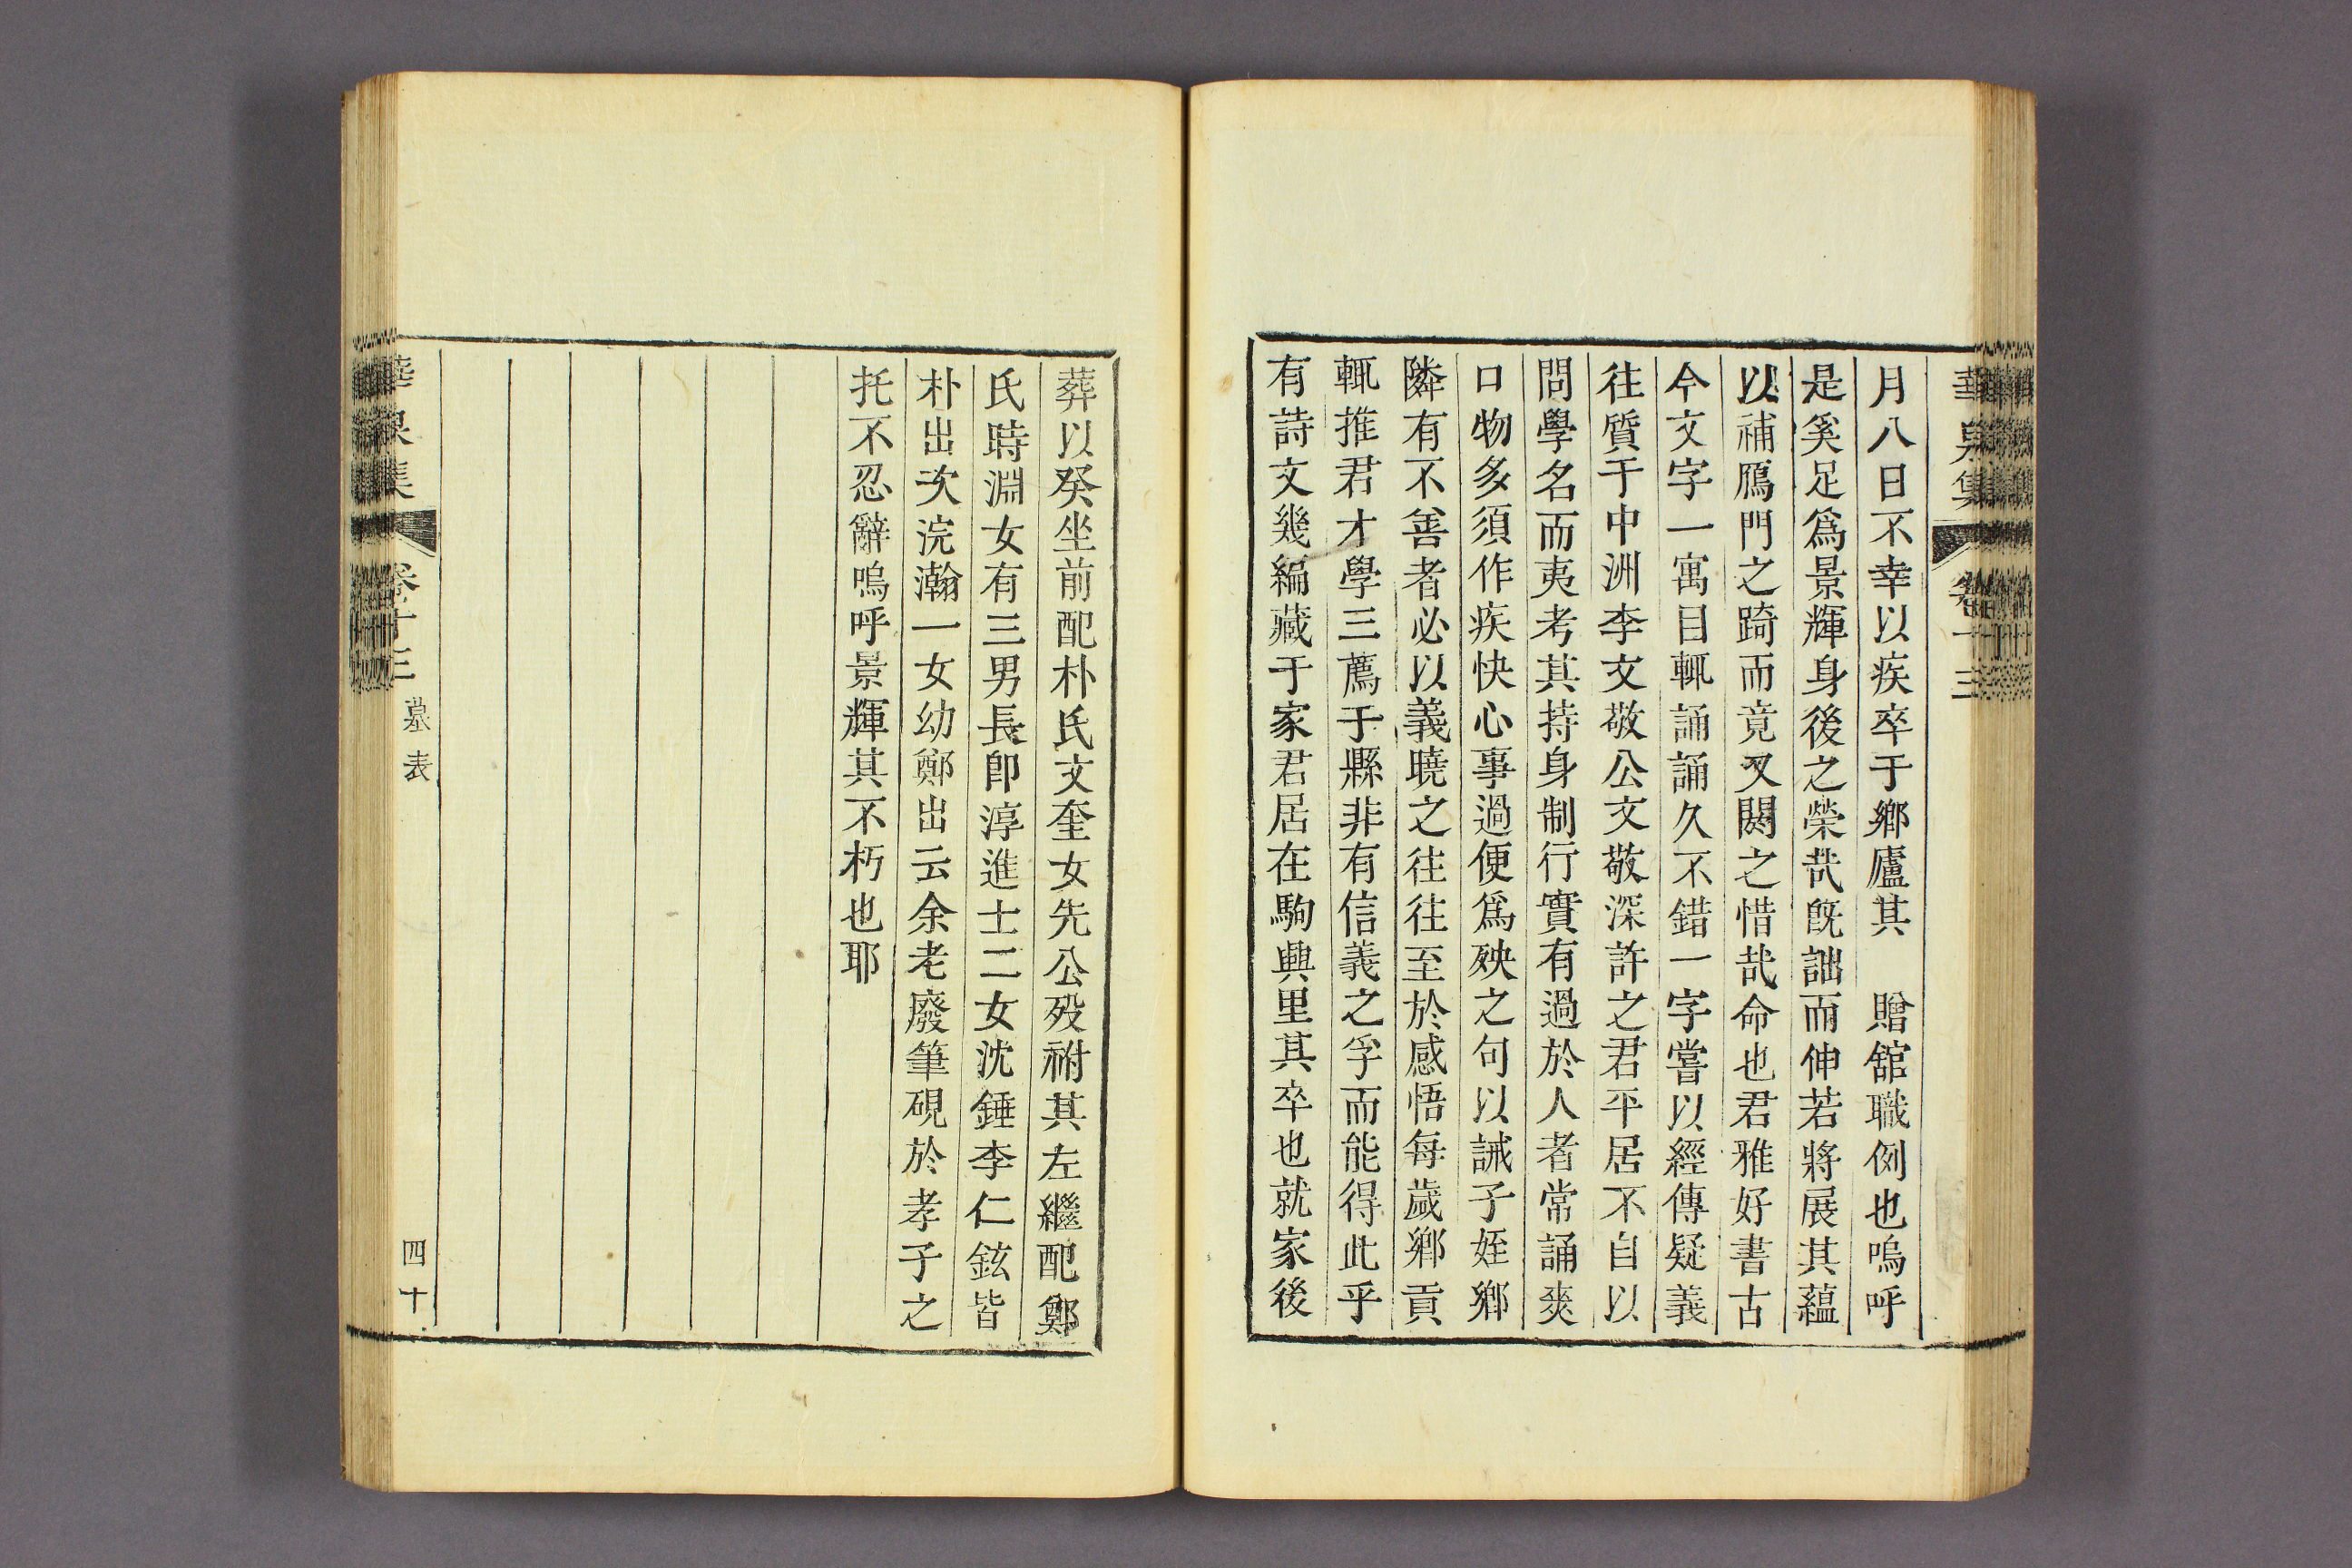 華泉集 卷十三
月八日不幸以疾卒于鄉廬其 贈舘職例也嗚呼
是奚足爲景輝身後之榮哉旣詘而伸若將展其蘊
以補鴈門之踦而竟又閼之惜哉命也君雅好書古
今文字一寓目輒誦誦久不錯一字嘗以經傳疑義
往質于中洲李文敬公文敬深許之君平居不自以
問學名而夷考其持身制行實有過於人者常誦爽
口物多須作疾快心事過便爲殃之句以誡子姪鄉
隣有不善者必以義曉之往往至於感悟每歲鄉貢
輒推君才學三薦于縣非有信義之孚而能得此乎
有詩文幾編藏于家君居在駒興里其卒也就家後
葬以癸坐前配朴氏文奎女先公歿祔其左繼配鄭
氏時淵女有三男長卽淳進士二女沈錘李仁鉉皆
朴出次浣瀚一女幼鄭出云余老廢筆硯於孝子之
托不忍辭嗚呼景輝其不朽也耶
華泉集 卷十三 墓表 四十